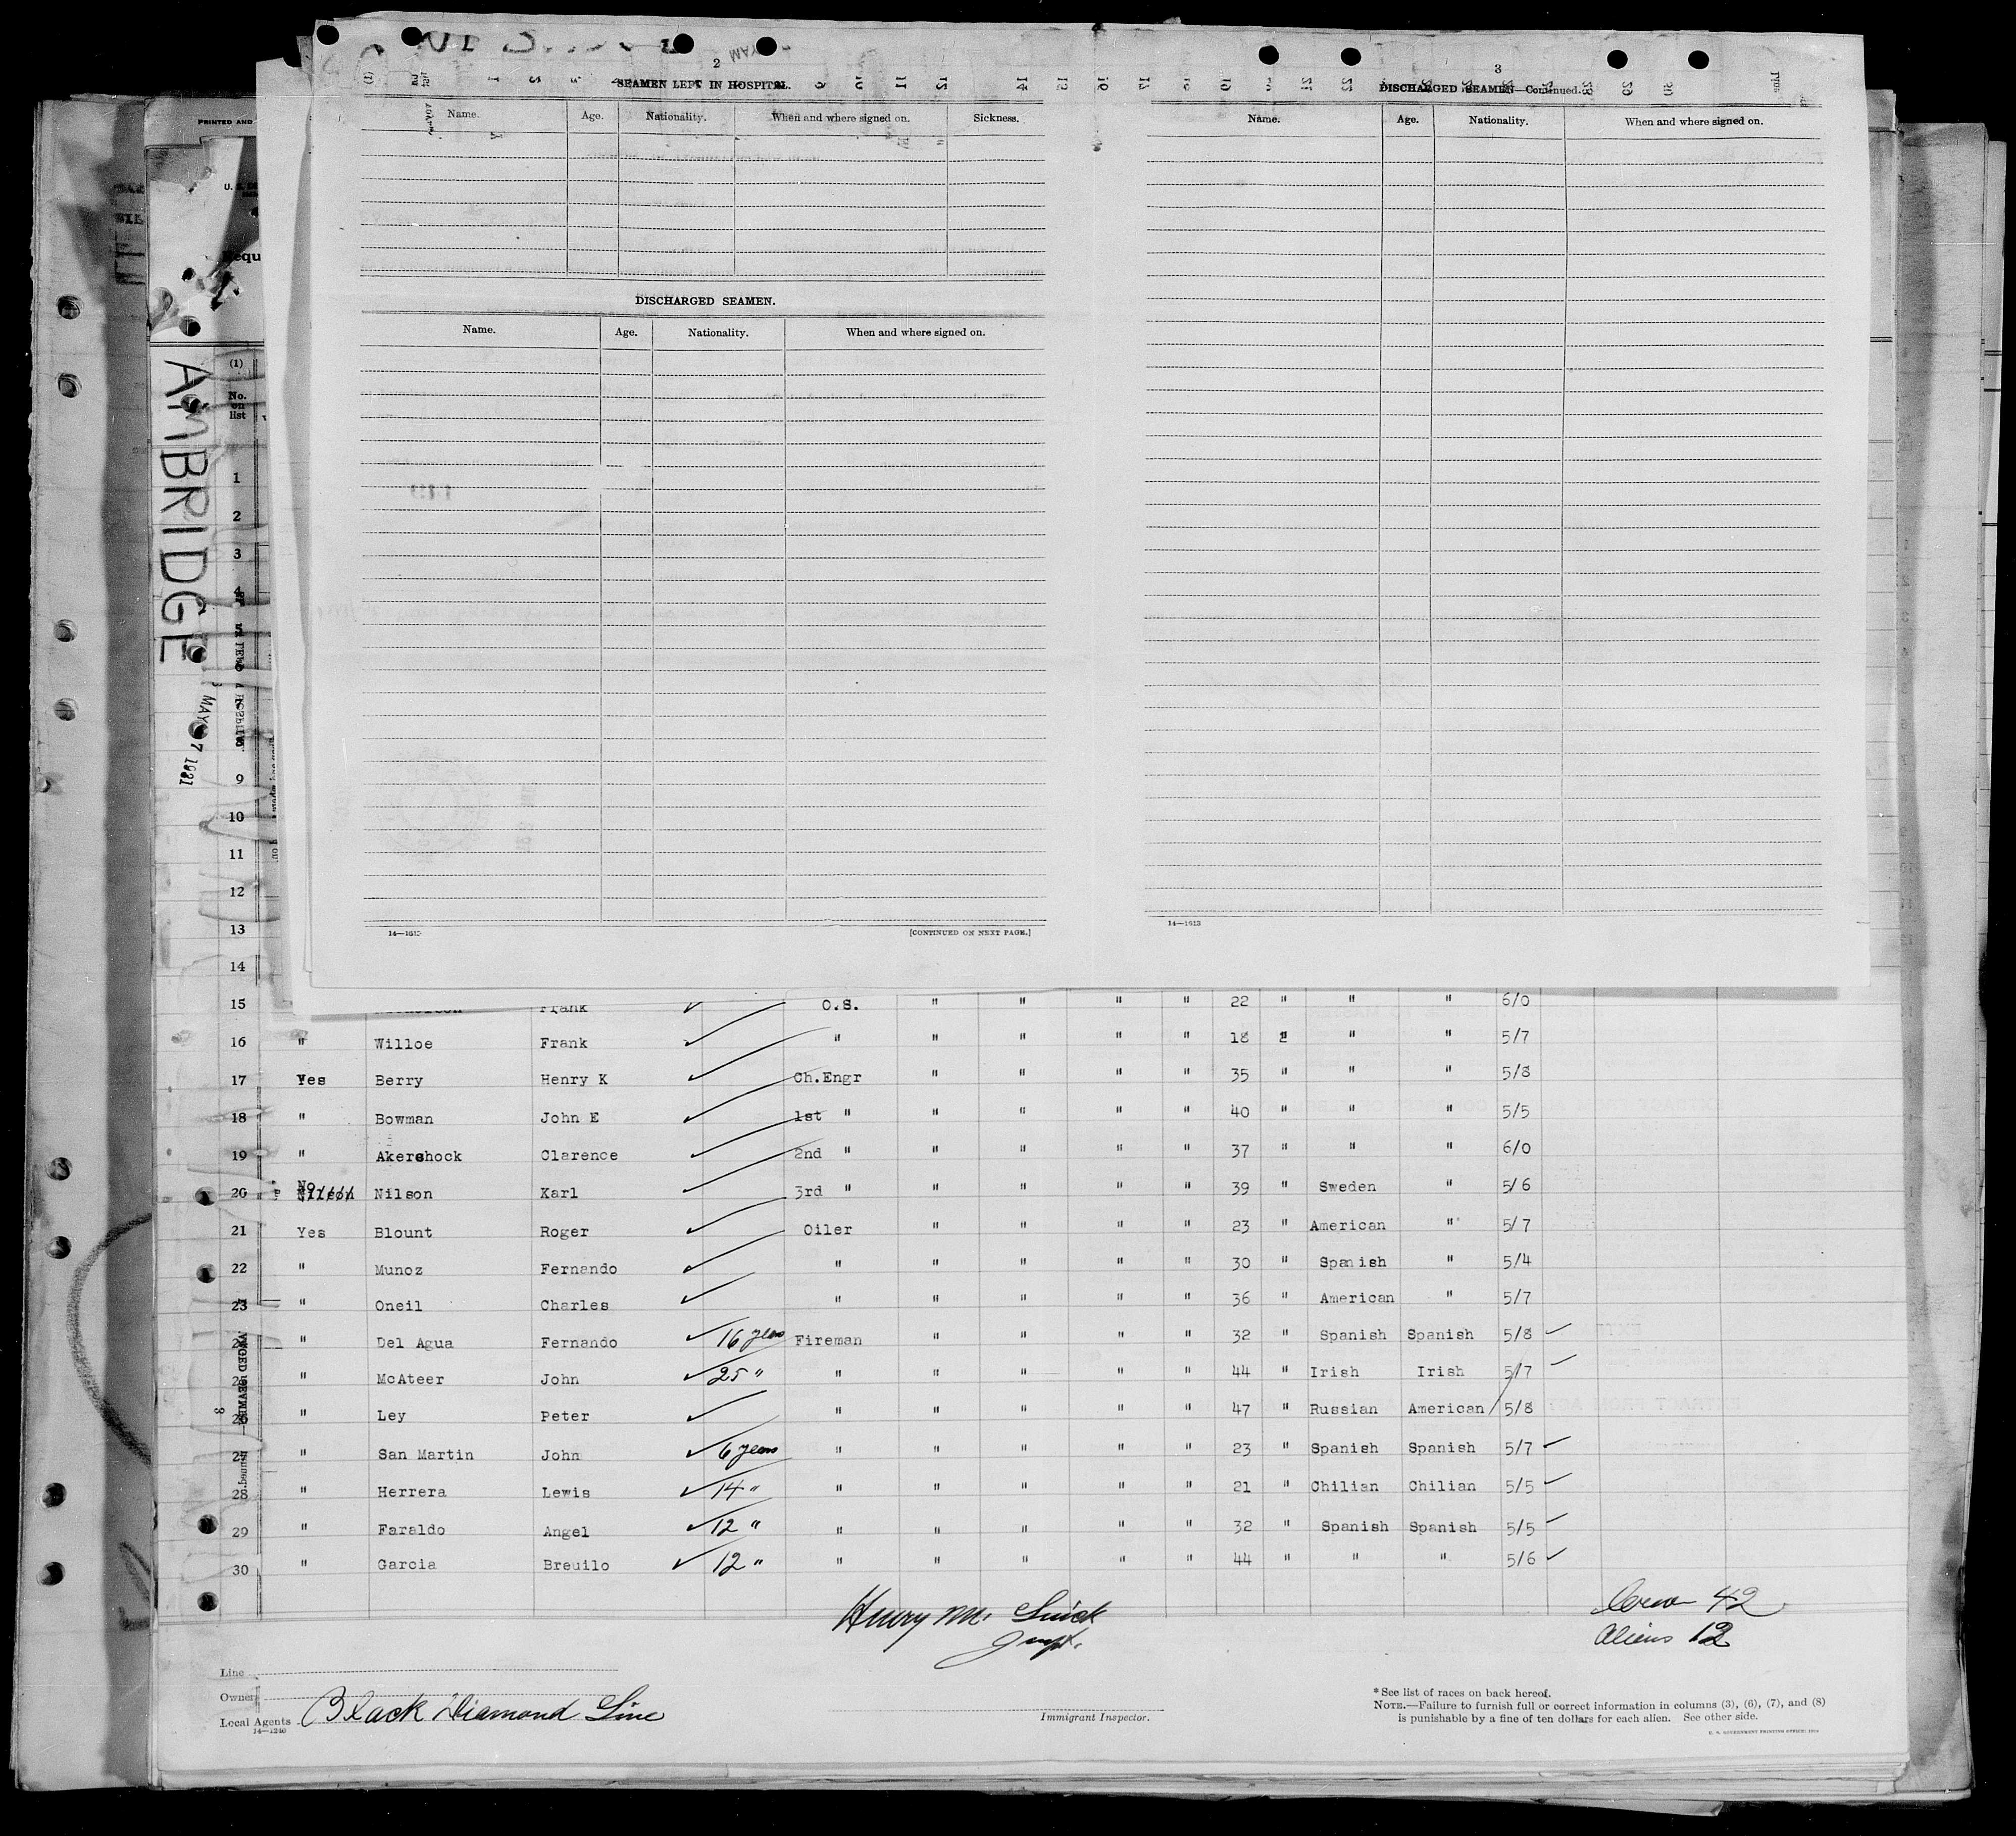 2
SEAMEN LEFT IN HOSPITAL.
Name. Age. Nationality. When and where signed on. Sickness.
DISCHARGED SEAMEN.
Name. Age. Nationality. When and where signed on.
14—1613 [CONTINUED ON NEXT PAGE.]
3
DISCHARGED SEAMEN—Continued.
Name. Age. Nationality. When and where signed on.
14—1613
PRINTED AND
AMBRIDGE
MAY 7 1931
(1)
No. on list
1
2
3
4
5
9
10
11
12
13
14
15 Frank O.S. " " " " 22 " " " 6/0
16 " Willoe Frank " " " " " 18 " " " 5/7
17 Yes Berry Henry K Ch.Engr " " " " 35 " " " 5/8
18 " Bowman John E 1st " " " " " 40 " " " 5/5
19 " Akershock Clarence 2nd " " " " " 37 " " " 6/0
20 No Nilson Karl 3rd " " " " " 39 " Sweden " 5/6
21 Yes Blount Roger Oiler " " " " 23 " American " 5/7
22 " Munoz Fernando " " " " " 30 " Spanish " 5/4
23 " Oneil Charles " " " " " 36 " American " 5/7
24 " Del Agua Fernando 16 years Fireman " " " " 32 " Spanish Spanish 5/8
25 " McAteer John 25 " " " " " " 44 " Irish Irish 5/7
26 " Ley Peter " " " " " 47 " Russian American 5/8
27 " San Martin John 6 years " " " " " 23 " Spanish Spanish 5/7
28 " Herrera Lewis 14 " " " " " " 21 " Chilian Chilian 5/5
29 " Faraldo Angel 12 " " " " " " 32 " Spanish Spanish 5/5
30 " Garcia Breuilo 12 " " " " " " 44 " " " 5/6
Henry M.
Crew 42
Aliens 12
Line
Owner
Local Agents Black Diamond Line
14—1240
Immigrant Inspector.
*See list of races on back hereof.
NOTE.—Failure to furnish full or correct information in columns (3), (6), (7), and (8)
is punishable by a fine of ten dollars for each alien. See other side.